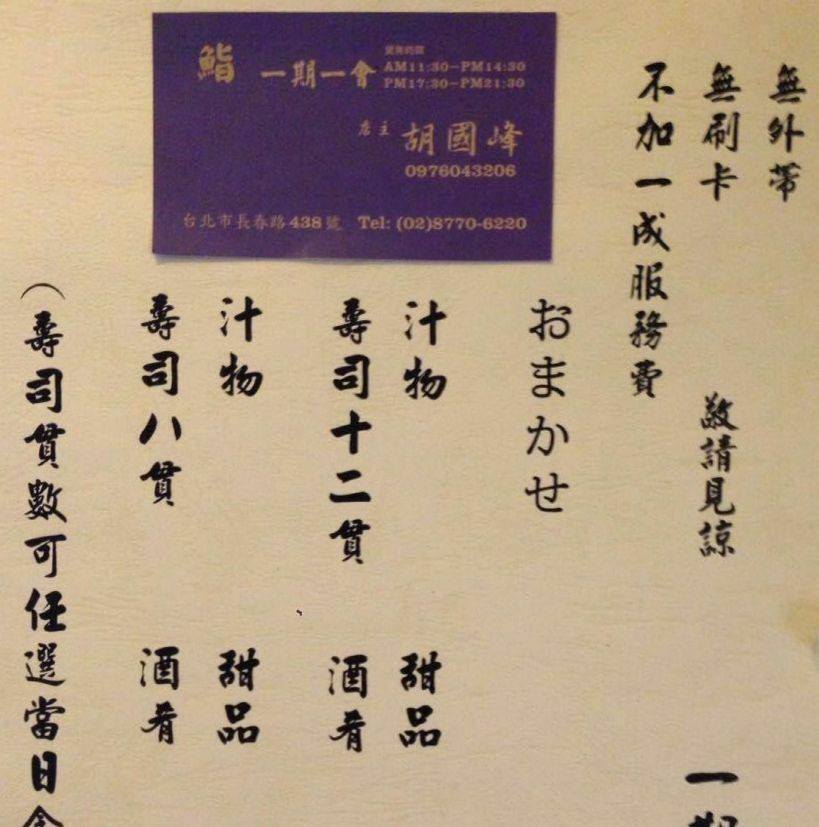 鮨 一期一會
營業時間
AM11:30-PM14:30
PM17:30-PM21:30
店主 胡國峰
0976043206
台北市長春路438號 Tel: (02)8770-6220
無外帶
無刷卡 敬請見諒
不加一成服務費
一期
おまかせ
汁物 甜品
壽司十二貫 酒肴
汁物 甜品
壽司八貫 酒肴
(壽司貫數可任選當日